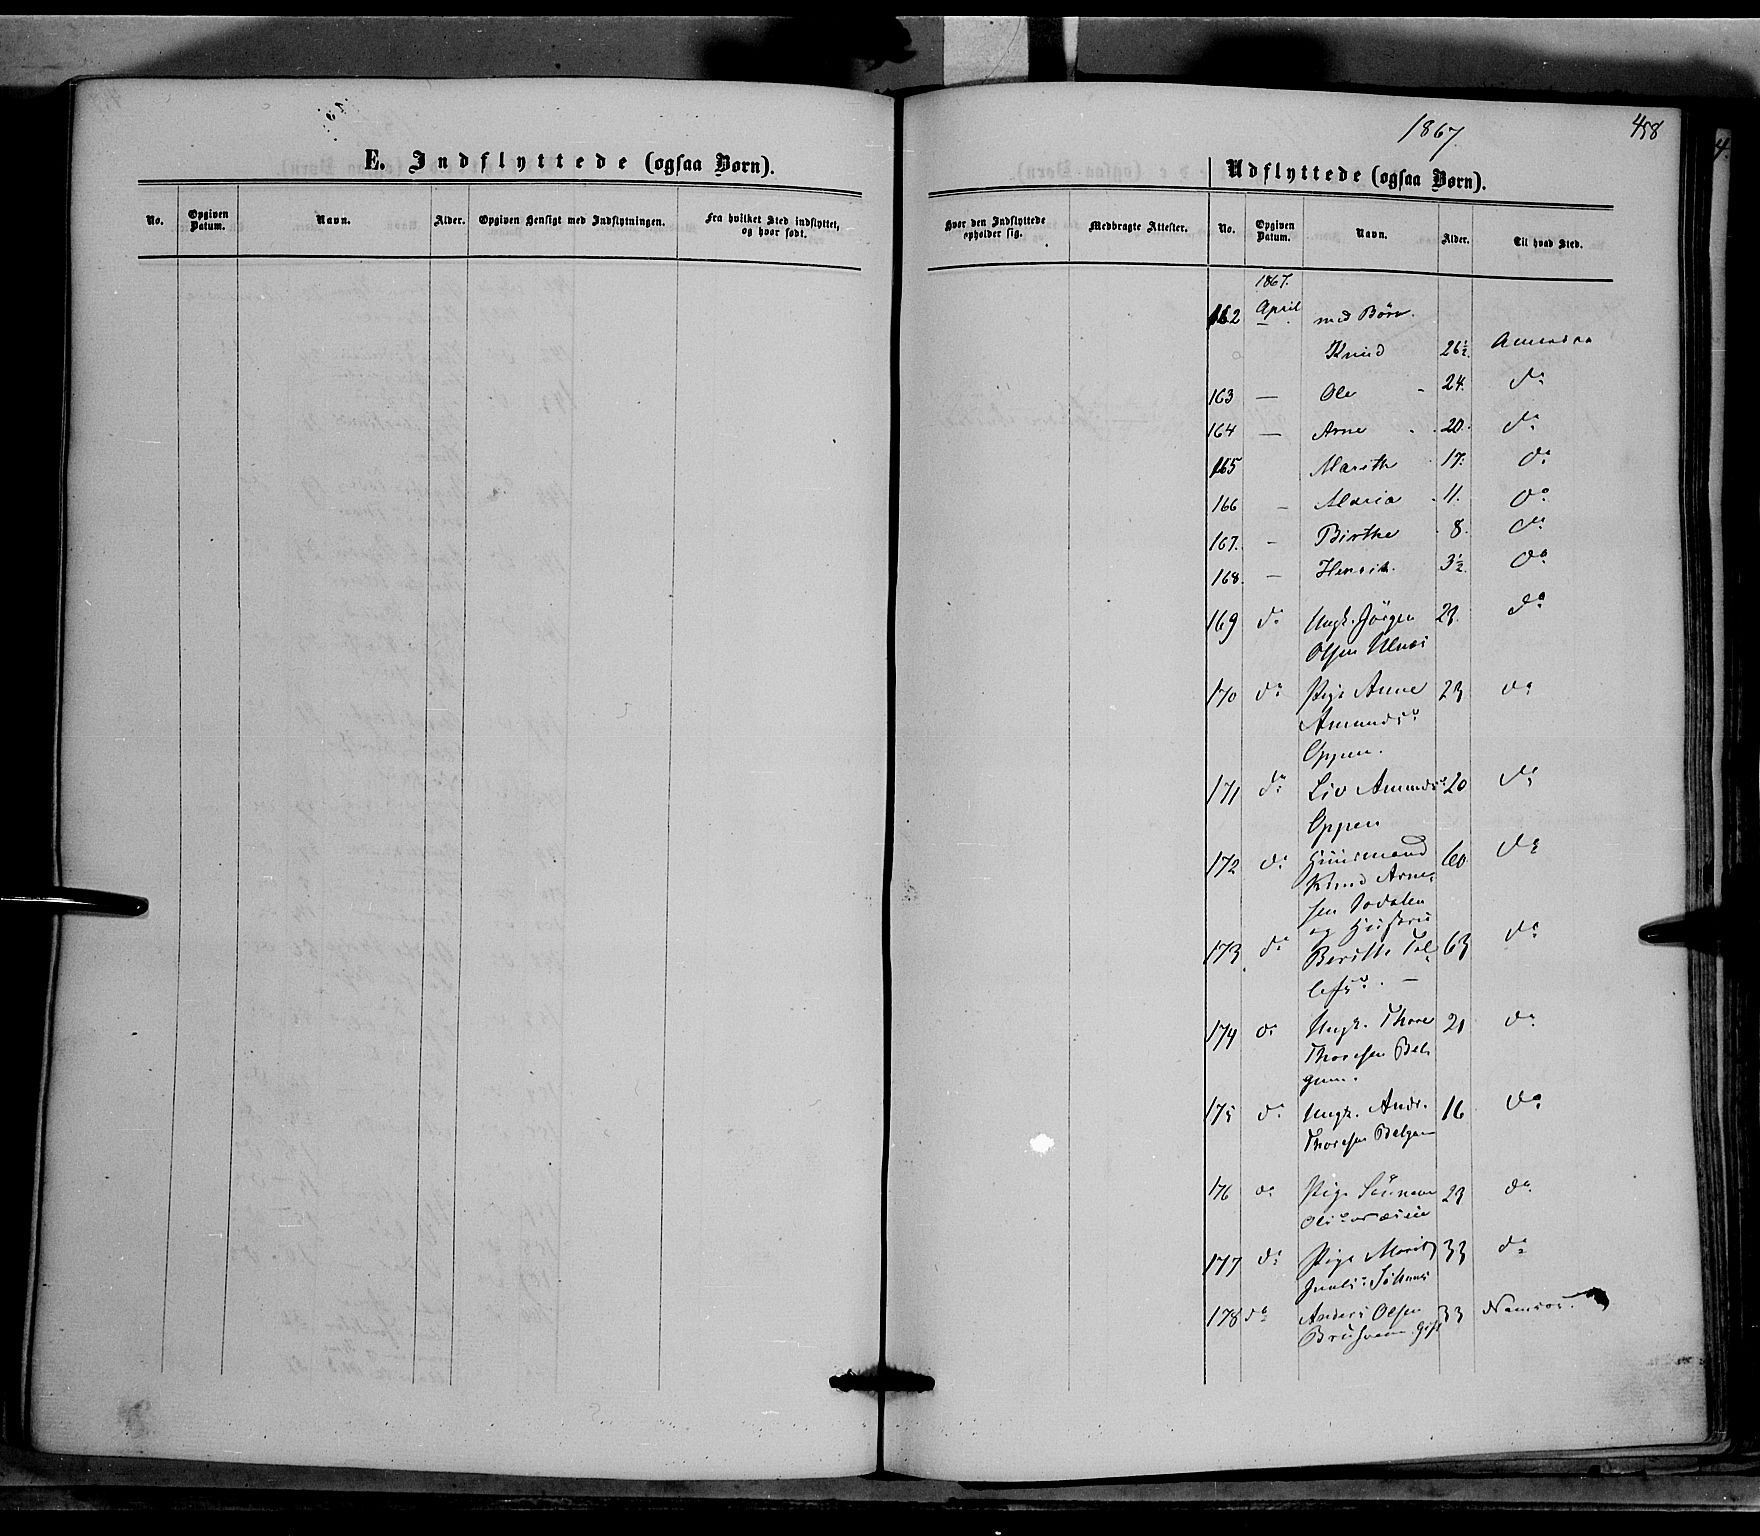 E. Indflyttede (ogsaa Børn).
No. Opgiven Datum. Navn. Alder. Opgiven Hensigt med Indflytningen. Fra hvilket Sted indflyttet, og hvor født.
1867. 458
Udflyttede (ogsaa Børn).
Hvor den Indflyttede opholder sig. Medbragte Attester. No. Opgiven Datum. Navn. Alder. Til hvad Sted.
1867.
162 April med Børn.
Knud 26½ America
163 — Ole 24. do
164 — Arne 20. do
165 Marith 17. do
166 – Maria 11. do
167. – Birthe 8. do
168. – Henrik 3½. do
169 do Ungk. Jörgen 23. do
Olsen Ulnæs
170 do Pige Anne 23 do
Amundsd.
Oppen.
171 do Liv Amundsd. 20 do
Oppen
172 do Huusmand 60 do
Knud Arne-
sen
og Hustru
173 do Berithe Tol- 63 do
lefsd. —
174 do Ungk. Thore 21 do
Thoresen Bel-
gum.
175 do Ungk. Andr. 16 do
Thoresen Belgum
176 do Pige 23 do
177 do Pige Marit 33 do
178 do Anders Olsen 33 Namsos.
Gift